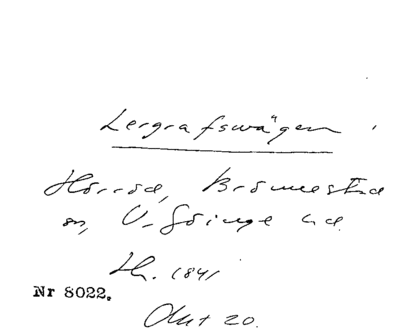 Lergrafswägen
Hörröd, Brönnestad
sn, V. Göinge hd.
Th. 1841
Nr 8022.
Akt 20.